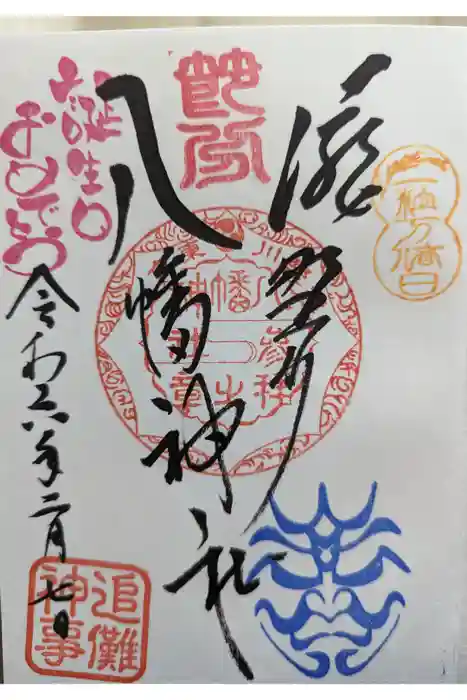 一粒万倍日
瀧野川
節分
八幡神社
お誕生日
おめでとう
令和六年二月七日
追儺
神事